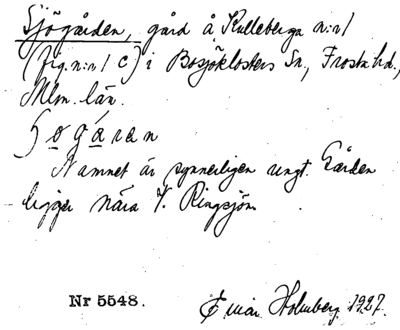 Sjögården, gård å Kulleberga n:r 1
(fig. n:r 1 C) i Bosjöklosters Sn, Frosta hd.,
Mlm. län.
Namnet är synnerligen ungt. Gården
ligger nära V. Ringsjön.
Nr 5548.
Einar Holmberg 1927.